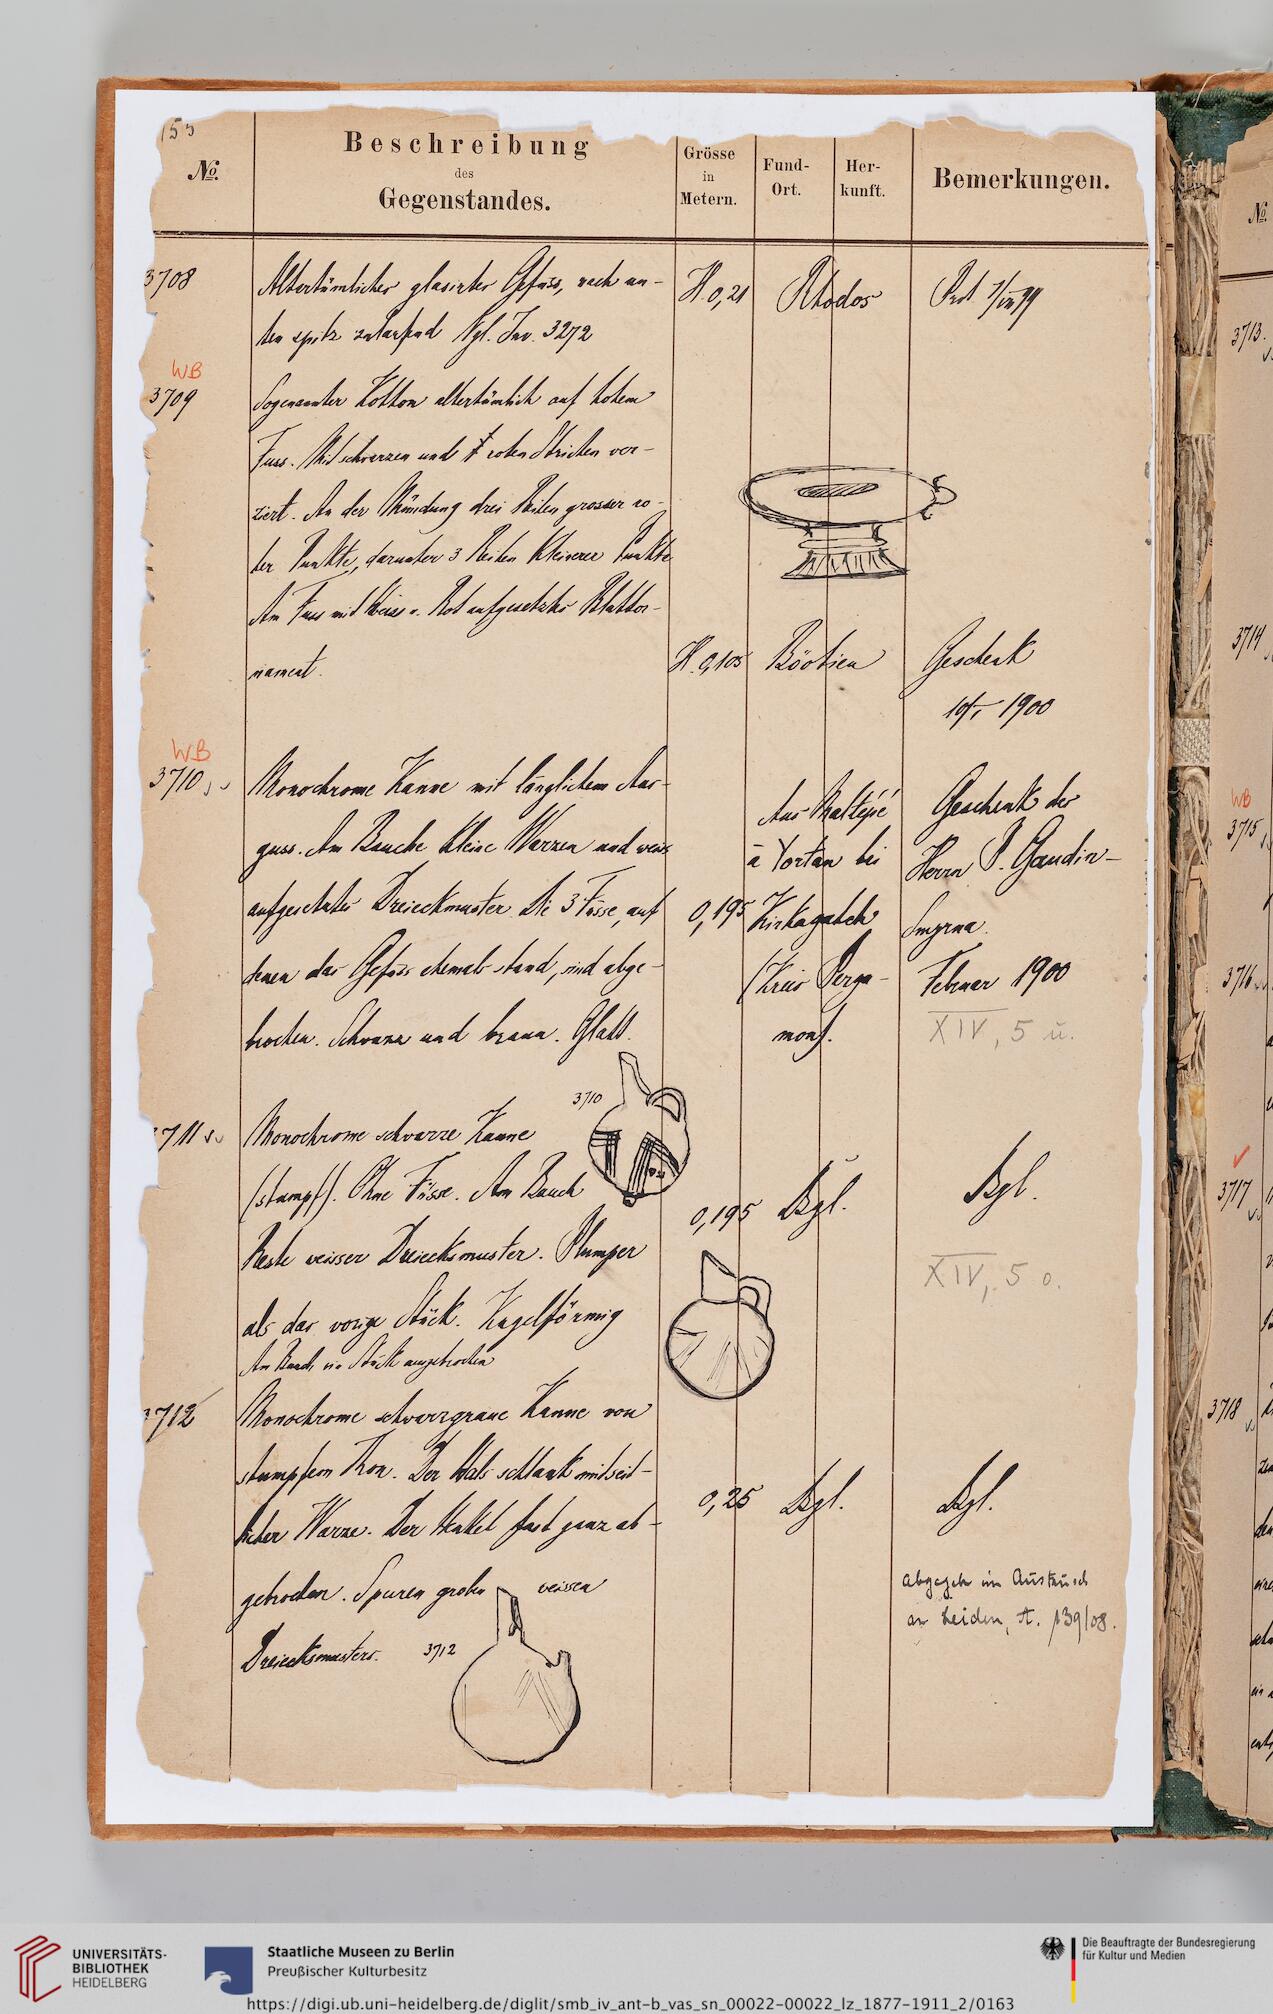 155
No.
Beschreibung
des
Gegenstandes.
Grösse
in
Metern.
Fund-
Ort.
Her-
kunft.
Bemerkungen.
3708
Altertümliches glasirtes Gefäss, nach un-
ten spitz zulaufend Vgl. Inv. 3272
H. 0,21
Rhodos
WB
3709
Sogenannter Kothon altertümlich auf hohem
Fuss. Mit schwarzen und roten Strichen ver-
ziert. An der Mündung drei Reihen grosser ro-
ter Punkte, darunter 3 Reihen kleinerer Punkte
Am Fuss mit Weiss u. Rot aufgesetztes Blattor-
nament.
H. 0,105
Böotien
Geschenk
1900
WB
3710
Monochrome Kanne mit länglichem Aus-
guss. Am Bauche kleine Warzen und weiss
aufgesetztes Dreieckmuster. Die 3 Füsse, auf
denen das Gefäss ehemals stand, sind abge-
brochen. Schwarz und braun. Glatt.
0,195
Aus Maltépé
à Yortan bei
Kirkagatch
(Kreis Perga-
mon).
Geschenk des
Herrn P. Gaudin-
Smyrna.
Februar 1900
XIV, 5 u.
3710
3711
Monochrome schwarze Kanne
(stumpf). Ohne Füsse. Am Bauch
Reste weisser Dreiecksmuster. Plumper
als das vorige Stück. Kugelförmig
Am Bauch ein Stück ausgebrochen
0,195
Dsgl.
Dsgl.
XIV, 5 o.
3712
Monochrome schwarzgraue Kanne von
stumpfem Ton. Der Hals schlank mit seit-
licher Warze. Der Henkel fast ganz ab-
gebrochen. Spuren grossen weissen
Dreiecksmusters.
3712
0,25
Dsgl.
Dsgl.
abgegeb. im Austausch
an Leiden, A. 139/08.
No.
3713.
3714
WB
3715
3716
3717
3718
UNIVERSITÄTS-
BIBLIOTHEK
HEIDELBERG
Staatliche Museen zu Berlin
Preußischer Kulturbesitz
Die Beauftragte der Bundesregierung
für Kultur und Medien
https://digi.ub.uni-heidelberg.de/diglit/smb_iv_ant-b_vas_sn_00022-00022_lz_1877-1911_2/0163